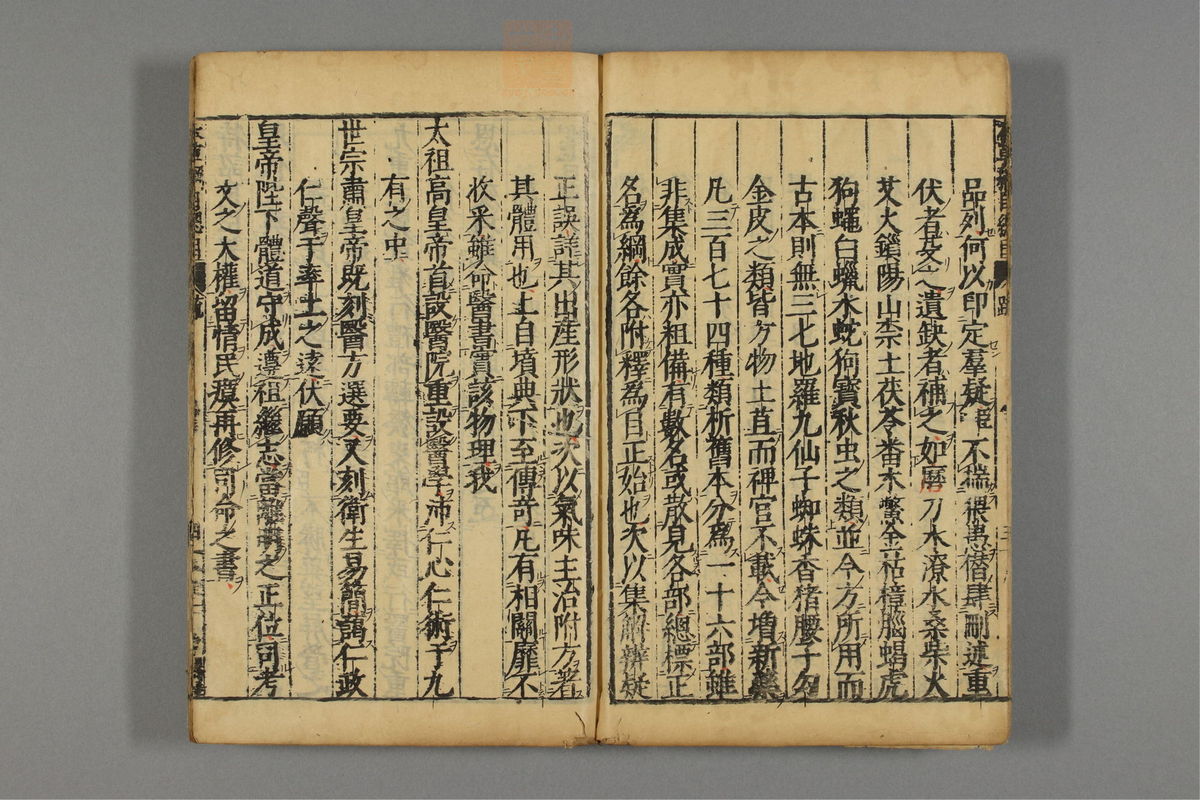 品列何以印定羣疑臣不揣猥愚僣肆刪述重
伏者芟之遺缺者補之如磨刀水潦水桑柴火
艾火鎖陽山柰土茯苓番木鱉金枯樟腦蝎虎
狗蠅白蠟水蛇狗寶秋虫之類並今方所用而
古本則無三七地羅九仙子蜘蛛香猪腰子勾
金皮之類皆方物土苴而稗官不載今增新藥
凡三百七十四種類析舊本分爲一十六部雖
非集成實亦粗備有數名或散見各部總標正
名爲綱餘各附釋爲目正始也次以集解辨疑
正誤詳其出産形狀也次以氣味主治附方著
其體用也上自墳典下至傳奇凡有相關靡不
收采雖命醫書實該物理我
太祖高皇帝首設醫院重設醫學沛仁心仁術于九
有之中
世宗肅皇帝既刻醫方選要又刻衛生易簡藹仁政
仁聲于率土之遠伏願
皇帝陛下體道守成遵祖繼志當離明之正位司考
文之大權留情民瘼再修司命之書